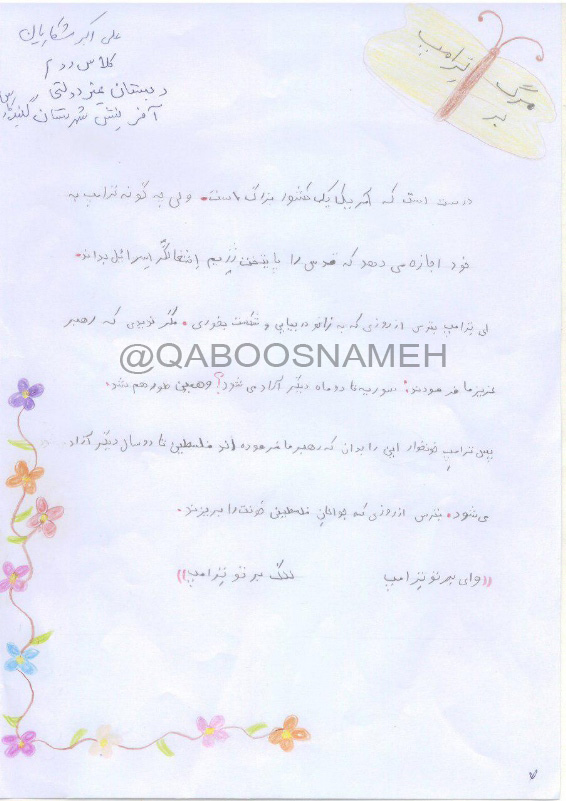 علی اکبر شکاریان
کلاس دوم
دبستان غیر دولتی
آفرینش شهرستان گنبد
مرگ بر ترامپ
درست است که آمریکا یک کشور بزرگ است. ولی چه گونه ترامپ به
خود اجازه می دهد که قدس را پایتخت رژیم اشغالگر اسرائیل بداند.
ای ترامپ بترس از روزی که به زانو در بیایی و شکست بخوری. مگر ندیدی که رهبر
@QABOOSNAMEH
عزیز ما فرمودند: سوریه تا دو ماه دیگر آزاد می شود؟ وهمین طور هم شد.
پس ترامپ خونخوار این را بدان که رهبر ما فرموده اند فلسطین تا دو سال دیگر آزاد
می شود. بترس از روزی که جوانان فلسطینی خونت را بریزند.
((وای بر تو ترامپ ننگ بر تو ترامپ))